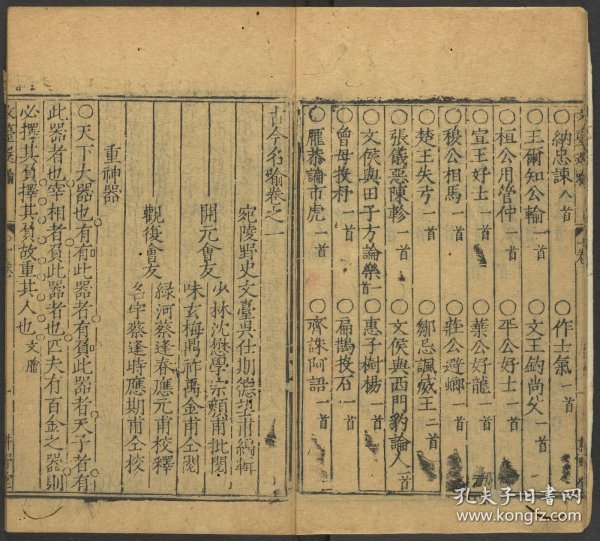 ○納忠諫八首 ○作士氣一首
○王爾知公輸一首 ○文王釣尚父一首
○桓公用管仲一首 ○平公好士一首
○宣王好士一首 ○葉公好龍一首
○穆公相馬一首 ○莊公避螂一首
○楚王失弓二首 ○鄒忌諷威王二首
○張儀惡陳軫一首 ○文侯與西門豹論人一首
○文侯與田子方論樂一首 ○惠子樹楊一首
○曾母投杼一首 ○扁鵲投石一首
○龐恭論市虎一首 ○齊誅阿語一首
古今名喻卷之一
宛陵野史文臺吳仕期德望甫編輯
少林沈懋學宗顏甫批閱
開元會友
味玄梅鼎祚禹金甫仝閱
綠河蔡逢春應元甫校釋
觀復會友
蔡逢時應期甫仝校
重神器
○天下大器也有有此器者有負此器者天子者有
此器者也宰相者負此器者也匹夫有百金之器則
必擇其負擇其負故重其人也
孔夫子旧书网
www.kongfz.com